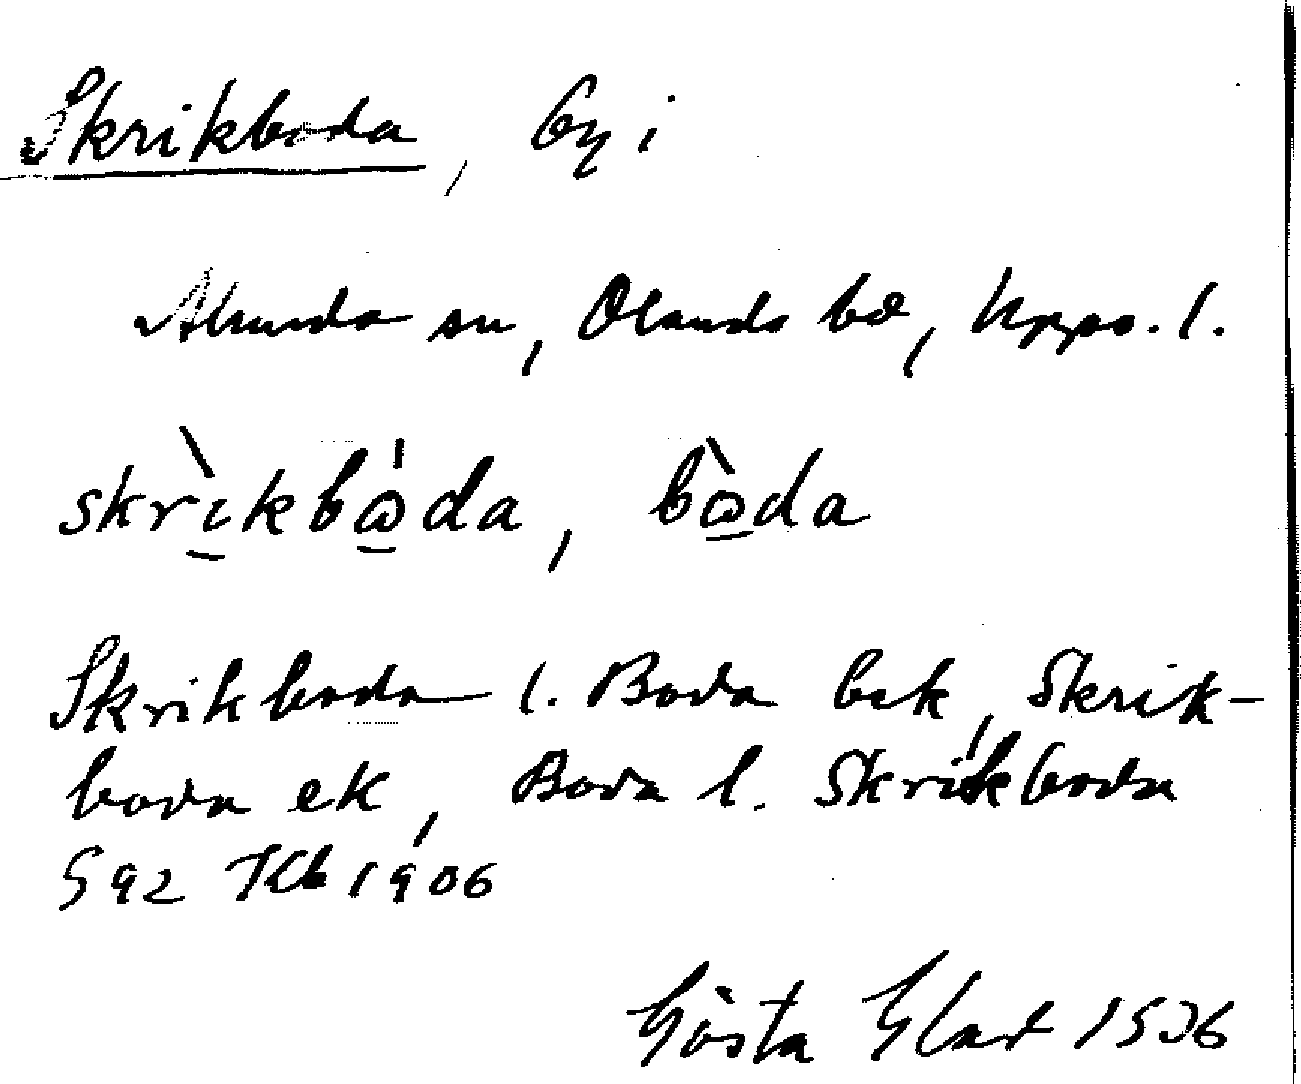 Skrikboda, by i
Alunda sn, Olands hd, Upps. l.
skrìkbω̇da, bὼda
Skrikboda l. Boda bek, Skrik-
boda ek, Boda l. Skrikboda
S 92 Kb 1906
Gösta Glad 1936